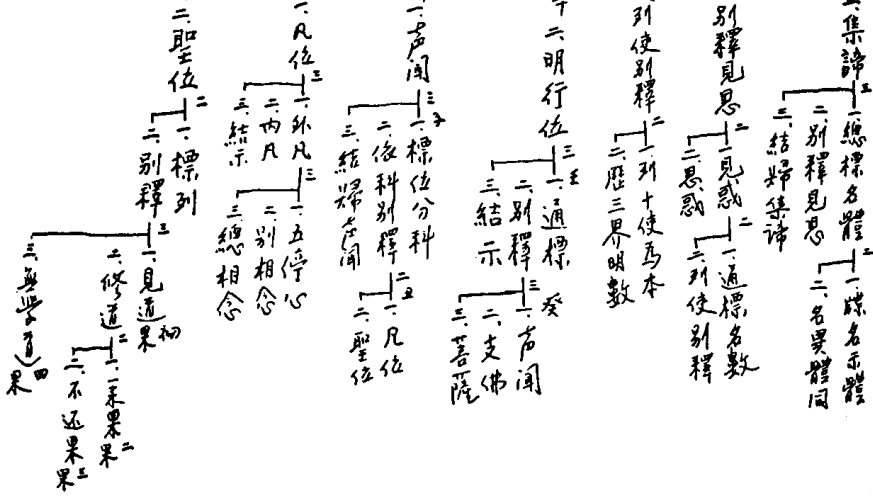 集諦 三
一、總標名體 二
一、牒名示體
二、名異體同
二、別釋見思
三、結歸集諦
別釋見思 二
一、見惑 二
一、通標名數
二、列使別釋
二、思惑
列使別釋 二
一、列十使為本
二、歷三界明數
二、明行位 三
壬
一、通標
二、別釋 三
癸
一、声聞
二、支佛
三、菩薩
三、結示
一、声聞 三
子
一、標位分科
二、依科別釋 二
丑
一、凡位
二、聖位
三、結歸声聞
一、凡位 三
一、外凡 三
一、五停心
二、別相念
三、總相念
二、內凡
三、結示
二、聖位 二
一、標列
二、別釋 三
一、見道 初果
二、修道 二
一、一来果 二果
二、不还果 三果
三、無學道 四果